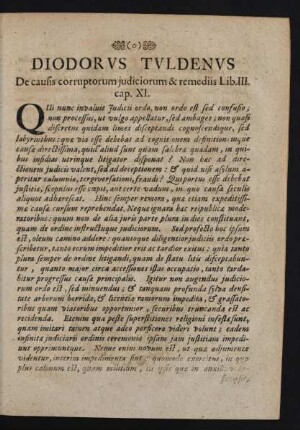 DIODORVS TVLDENVS
De causis corruptorum judiciorum & remediis Lib. III.
cap. XI.
QUi nunc invaluit Judicii ordo, non ordo est sed confusio;
non processus, ut vulgo appellatur, sed ambages; non quasi
discretus quidam limes disceptandi cognoscendique, sed
labyrinthus: qua via esse debebat ad cognitionem
causæ directissima, quid aliud sunt quam salebra quædam, in qui-
bus insidias utrinque litigator disponat? Non hac ad dire-
ctionem judicii valent, sed ad deceptionem: & quid nisi asylum a-
peritur calumniæ, tergiversationi, fraudi? Qui portus esse debebat
justitiæ, scopulus esse cœpit, aut certe vadum, in quo causa seculis
aliquot adhærescat. Hinc semper remora, qua etiam expeditissi-
ma causæ cursum reprehendas. Neque ignari hac reipublicæ mode-
ratoribus: quum non de alia juris parte plura in dies constituant,
quam de ordine instructuque judiciorum. Sed profecto hoc ipsum
est, oleum camino addere: quantoque diligentior judicii ordo præ-
scribetur, tanto forte impeditior erit ac tardior exitus; quia tanto
plura semper de ordine litigandi, quam de statu litis disceptabun-
tur, quanto major circa accessiones istas occupatio, tanto tarda-
bitur progressus causæ principalis. Igitur non augendus judicio-
rum ordo est, sed minuendus; & tanquam profunda sylva densi-
tate arborum horrida, & licentia ramorum impedita, & grassato-
ribus quam viatoribus opportunior, securibus truncanda est ac
recidenda. Etenim qua peste superstitiones religioni infestæ sunt,
quam imitari tutari atque adeo perficere videri volunt; eadem
infinita judiciarii ordinis ceremonia ipsam jam justitiam impedi-
unt opprimuntque. Neque enim novum est, ut qua adjumenta
videntur, interim impedimenta sint; quomodo exercitus, in quo
plus calonum est, quam militum,